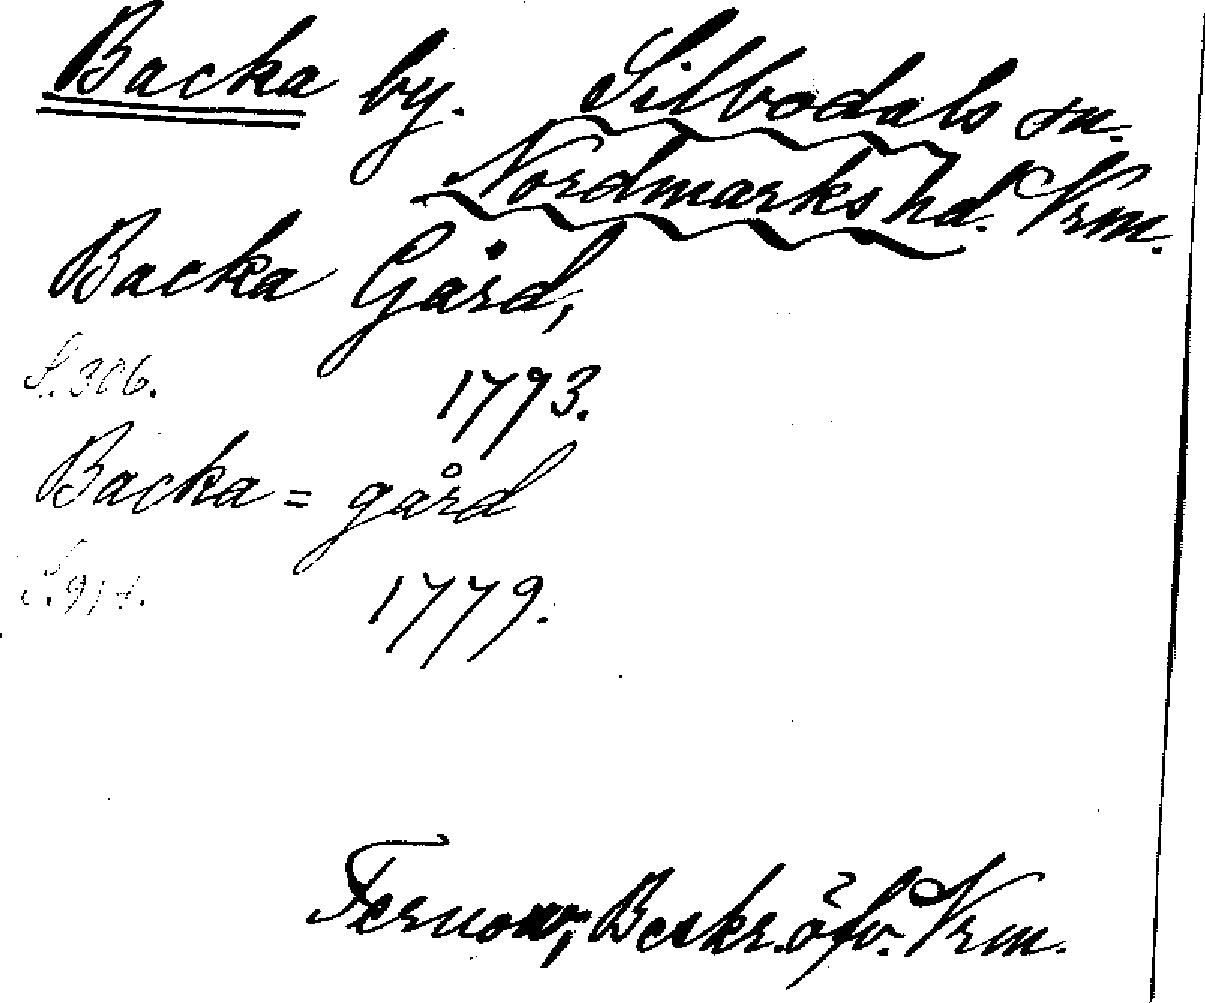 Backa by. Silbodals sn.
Nordmarks hd. Vrm.
Backa Gård,
S. 306. 1773.
Backa = gård
S. 914. 1779.
Fernow, Beskr. öfv. Vrm.